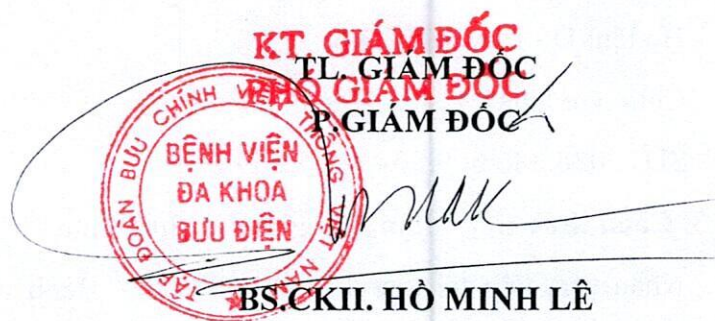 KT. GIÁM ĐỐC
TL. GIÁM ĐỐC
PHÓ GIÁM ĐỐC
P.GIÁM ĐỐC
TẬP ĐOÀN BƯU CHÍNH VIỄN THÔNG VIỆT NAM
BỆNH VIỆN
ĐA KHOA
BƯU ĐIỆN
BS.CKII. HỒ MINH LÊ